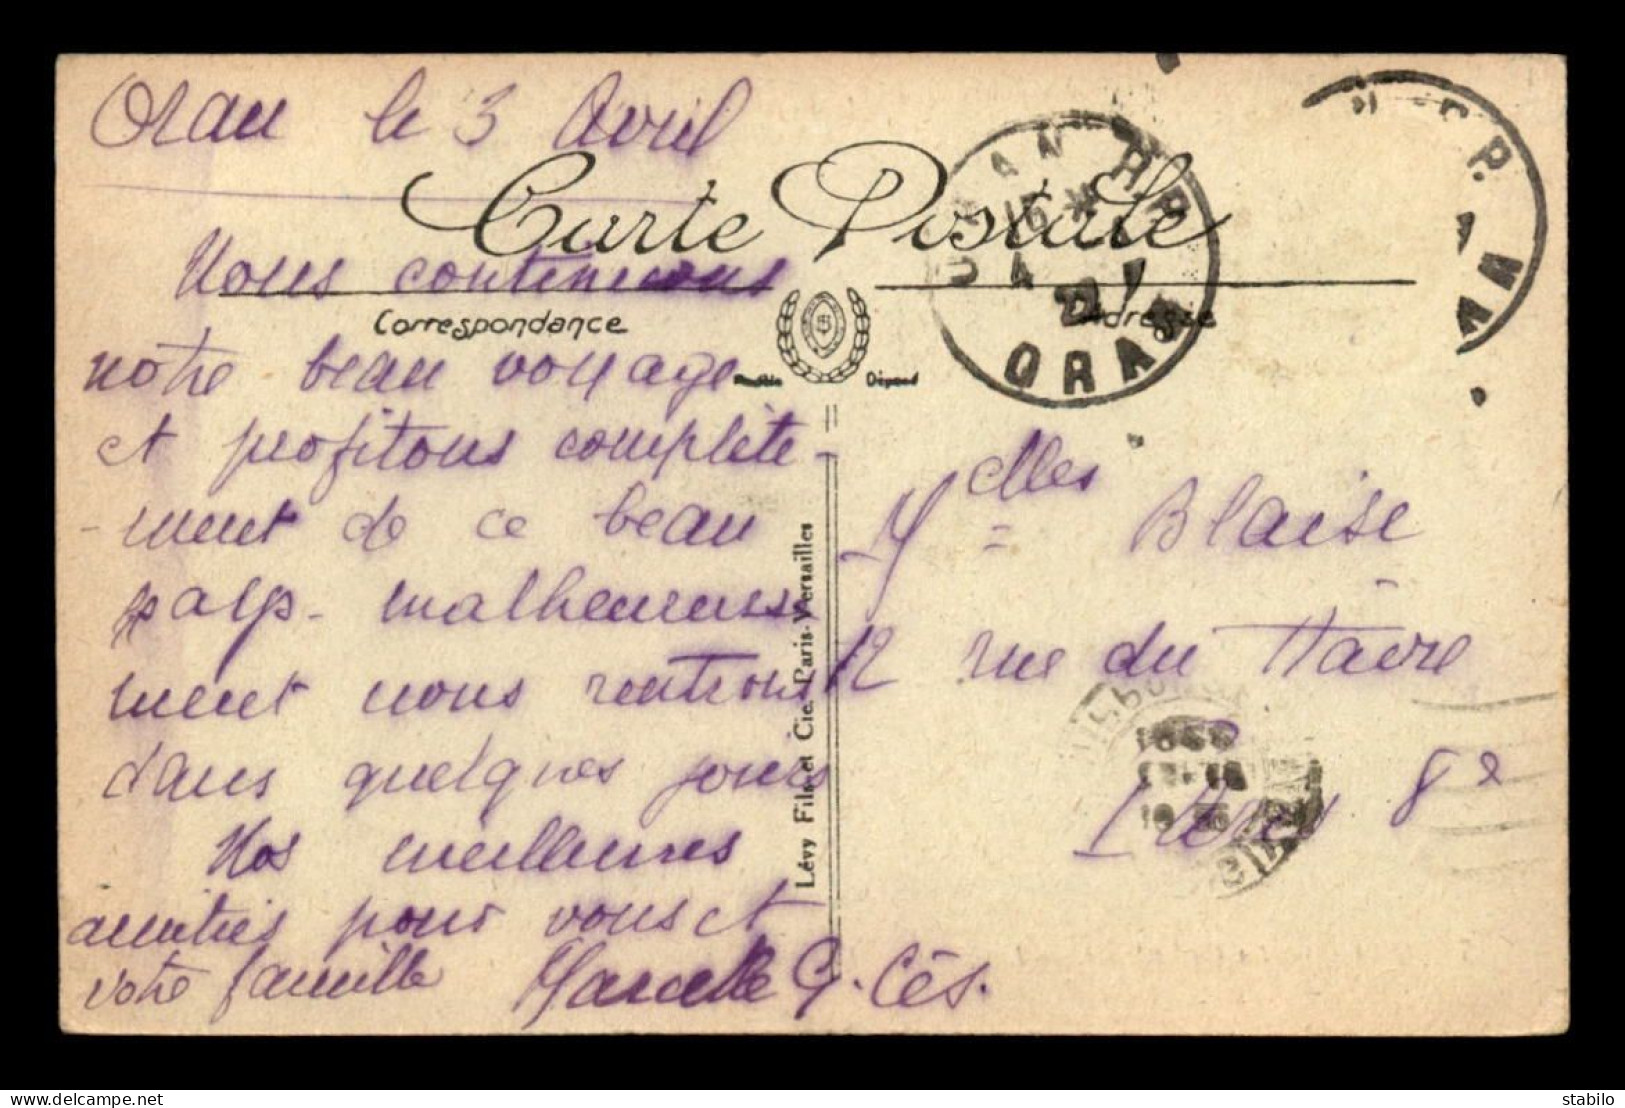 Oran le 3 Avril
Carte Postale
Nous continuons
Correspondance
Adresse
notre beau voyage
et profitons complète-
-ment de ce beau
malheureuse
ment nous rentrons
dans quelques jours
Nos meilleures
amitiés pour vous et
votre famille Marcelle G. Cés.
Lévy Fils et Cie. Paris-Versailles
Melles Blaise
12 rue du Havre
8e
ORAN
delcampe.net
stabilo